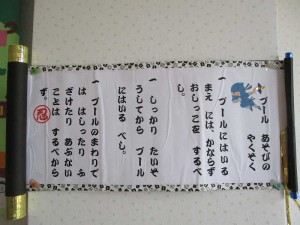 プール あそびの
やくそく
一 プールにはいる
まえ には、かならず
おしっこを するべ
し。
一 しっかり たいそ
うしてから プール
にはいる べし。
一 プールのまわりで
は はしったり ふ
ざけたり あぶない
ことは するべから
ず。
忍